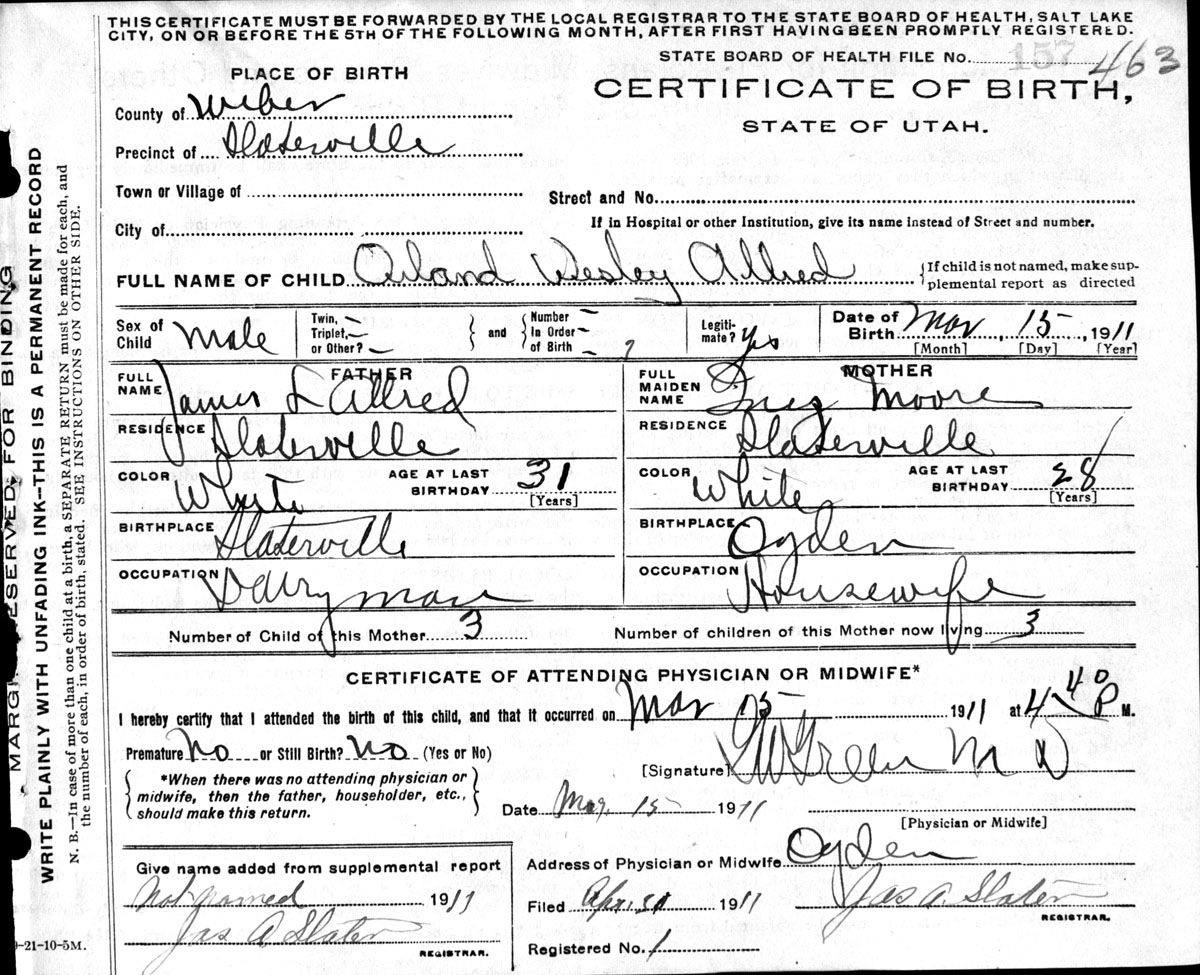 THIS CERTIFICATE MUST BE FORWARDED BY THE LOCAL REGISTRAR TO THE STATE BOARD OF HEALTH, SALT LAKE
CITY, ON OR BEFORE THE 5TH OF THE FOLLOWING MONTH, AFTER FIRST HAVING BEEN PROMPTLY REGISTERED.
STATE BOARD OF HEALTH FILE No. 157 463
PLACE OF BIRTH
CERTIFICATE OF BIRTH,
STATE OF UTAH.
County of Weber
Precinct of Slaterville
Town or Village of
Street and No.
City of
If in Hospital or other Institution, give its name instead of Street and number.
FULL NAME OF CHILD Orland Wesley Allred
{If child is not named, make sup-
plemental report as directed
Sex of Child Male
Twin, Triplet, or Other?
and
Number In Order of Birth
Legiti-mate? Yes
Date of Birth Mar 15, 1911
[Month] [Day] [Year]
FATHER
FULL NAME James L Allred
RESIDENCE Slaterville
COLOR White AGE AT LAST BIRTHDAY 31 [Years]
BIRTHPLACE Slaterville
OCCUPATION Dairyman
MOTHER
FULL MAIDEN NAME Inez Moore
RESIDENCE Slaterville
COLOR White AGE AT LAST BIRTHDAY 28 [Years]
BIRTHPLACE Ogden
OCCUPATION Housewife
Number of Child of this Mother 3
Number of children of this Mother now living 3
CERTIFICATE OF ATTENDING PHYSICIAN OR MIDWIFE*
I hereby certify that I attended the birth of this child, and that it occurred on Mar 15 1911 at 4 40 P M.
Premature No or Still Birth? No (Yes or No)
*When there was no attending physician or
midwife, then the father, householder, etc.,
should make this return.
[Signature] Green M D
Date Mar. 15 1911
[Physician or Midwife]
Give name added from supplemental report
Not named 1911
Jas A Slater
REGISTRAR.
Address of Physician or Midwife Ogden
Filed Apr. 30 1911 Jas A. Slater
REGISTRAR.
Registered No. 1
9-21-10-5M.
MARGIN RESERVED FOR BINDING
WRITE PLAINLY WITH UNFADING INK--THIS IS A PERMANENT RECORD
N. B.—In case of more than one child at a birth, a SEPARATE RETURN must be made for each, and
the number of each, in order of birth, stated. SEE INSTRUCTIONS ON OTHER SIDE.